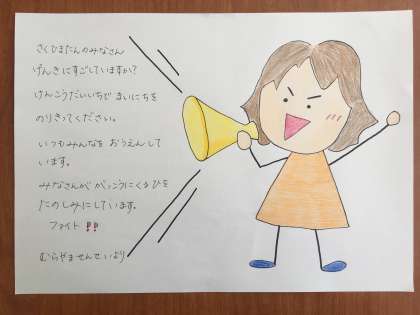 さくひまたんのみなさん
げんきにすごしていますか?
けんこうだいいちで まいにちを
のりきってください。
いつもみんなを おうえんして
います。
みなさんが がっこうにくるひを
たのしみにしています。
ファイト!!
むらやませんせいより